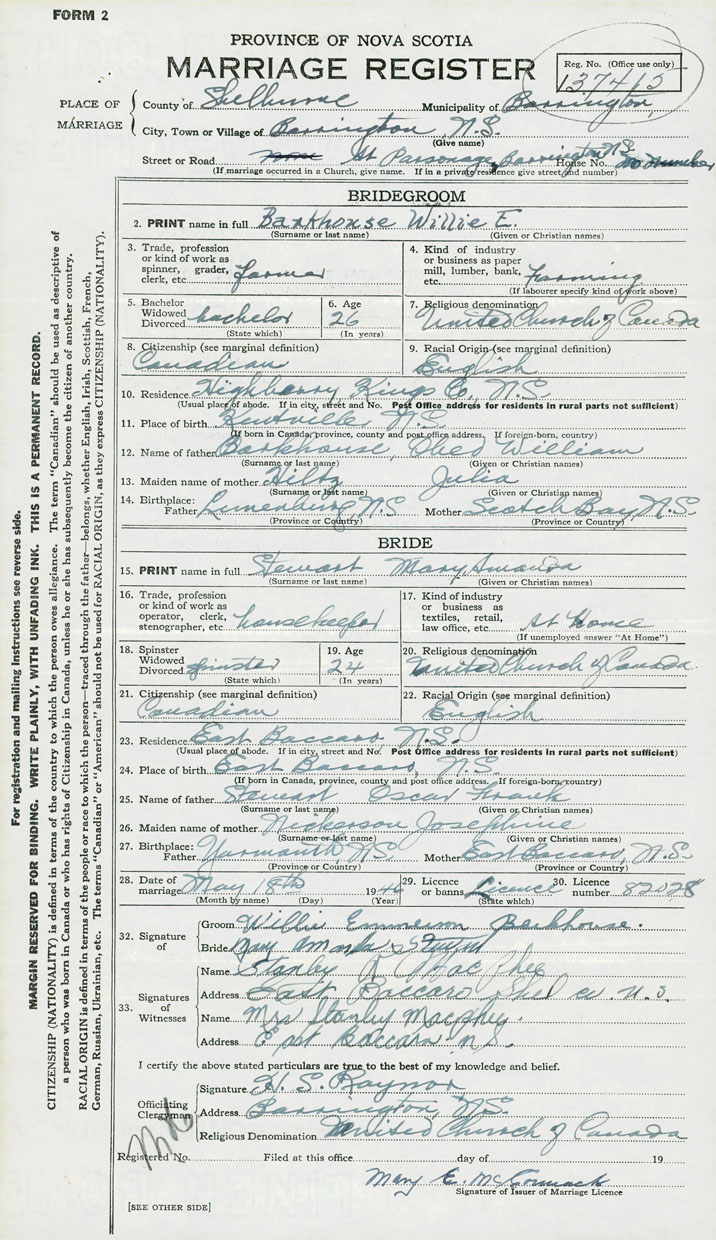 FORM 2
PROVINCE OF NOVA SCOTIA
MARRIAGE REGISTER
Reg. No. (Office use only)
137415
PLACE OF MARRIAGE
County of Shelburne Municipality of Barrington
City, Town or Village of Barrington, N.S.
(Give name)
Street or Road At Parsonage, Barrington N.S. House No. no number
(If marriage occurred in a Church, give name. If in a private residence give street and number)
BRIDEGROOM
2. PRINT name in full Barkhouse Willie E.
(Surname or last name) (Given or Christian names)
3. Trade, profession or kind of work as spinner, grader, clerk, etc. farmer
4. Kind of industry or business as paper mill, lumber, bank, etc. Farming
(If labourer specify kind of work above)
5. Bachelor Widowed Divorced bachelor
(State which)
6. Age 26
(In years)
7. Religious denomination United Church of Canada
8. Citizenship (see marginal definition) Canadian
9. Racial Origin (see marginal definition) English
10. Residence Highbury Kings Co, N.S
(Usual place of abode. If in city, street and No. Post Office address for residents in rural parts not sufficient)
11. Place of birth Kentville N.S.
(If born in Canada, province, county and post office address. If foreign-born, country)
12. Name of father Barkhouse, Obed William
(Surname or last name) (Given or Christian names)
13. Maiden name of mother Hiltz Julia
(Surname or last name) (Given or Christian names)
14. Birthplace: Father Lunenburg, N.S Mother Scotch Bay, N.S.
(Province or Country) (Province or Country)
BRIDE
15. PRINT name in full Stewart Mary Amanda
(Surname or last name) (Given or Christian names)
16. Trade, profession or kind of work as operator, clerk, stenographer, etc. housekeeper
17. Kind of industry or business as textiles, retail, law office, etc. At Home
(If unemployed answer "At Home")
18. Spinster Widowed Divorced spinster
(State which)
19. Age 24
(In years)
20. Religious denomination United Church of Canada.
21. Citizenship (see marginal definition) Canadian
22. Racial Origin (see marginal definition) English
23. Residence East Baccaro N.S.
(Usual place of abode. If in city, street and No. Post Office address for residents in rural parts not sufficient)
24. Place of birth East Baccaro, N.S.
(If born in Canada, province, county and post office address. If foreign-born, country)
25. Name of father Stewart Oscar Frank
(Surname or last name) (Given or Christian names)
26. Maiden name of mother Nickerson Josephine
(Surname or last name) (Given or Christian names)
27. Birthplace: Father Yarmouth, N.S. Mother East Baccaro, N.S.
(Province or Country) (Province or Country)
28. Date of marriage May 18th 1946
(Month by name) (Day) (Year)
29. Licence or banns Licence
(State which)
30. Licence number 82028
32. Signature of
Groom Willie Emmerson Barkhouse.
Bride Mary Amanda Stewart
33. Signatures of Witnesses
Name Stanley MacPhee
Address East Baccaro Shel co. N.S.
Name Mrs Stanley Macphee.
Address East Baccaro N.S.
I certify the above stated particulars are true to the best of my knowledge and belief.
Officiating Clergyman
Signature H. S. Raynor
Address Barrington, N.S.
Religious Denomination United Church of Canada
Registered No. Filed at this office day of 19
Mary E. McCormack
Signature of Issuer of Marriage Licence
[SEE OTHER SIDE]
For registration and mailing instructions see reverse side.
MARGIN RESERVED FOR BINDING. WRITE PLAINLY, WITH UNFADING INK. THIS IS A PERMANENT RECORD.
CITIZENSHIP (NATIONALITY) is defined in terms of the country to which the person owes allegiance. The term "Canadian" should be used as descriptive of
a person who was born in Canada or who has rights of Citizenship in Canada, unless he or she has subsequently become the citizen of another country.
RACIAL ORIGIN is defined in terms of the people or race to which the person—traced through the father—belongs, whether English, Irish, Scottish, French,
German, Russian, Ukrainian, etc. The terms "Canadian" or "American" should not be used for RACIAL ORIGIN, as they express CITIZENSHIP (NATIONALITY).